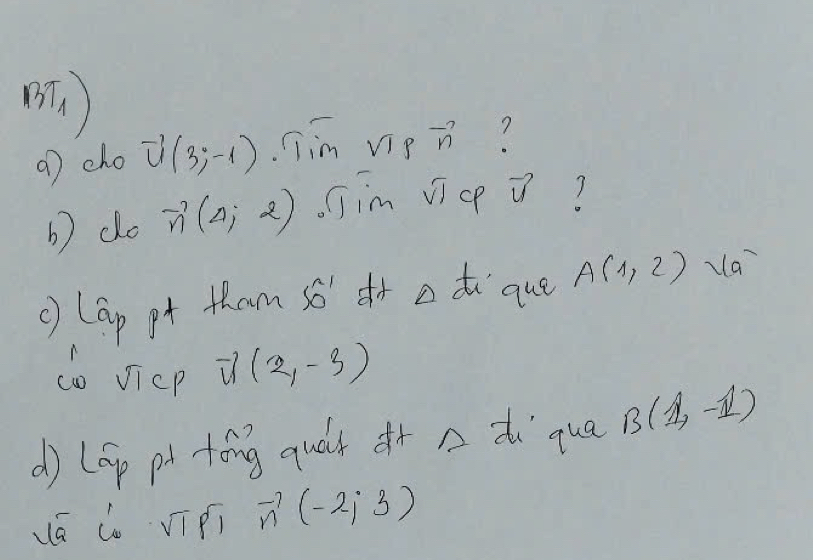 BT1)
a) cho u⃗(3;-1). Tìm VTP n⃗ ?
b) cho n⃗(1; 2). Tìm VTcp u⃗ ?
c) Lập pt tham số đt Δ đi qua A(1, 2) và
có VTcp u⃗(2,-3)
d) Lập pt tổng quát đt Δ đi qua B(1, -1)
và có VTPT n⃗(-2; 3)